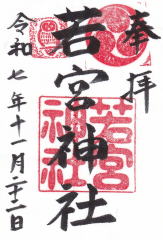 奉拝
若宮神社
若宮
神社
令和七年十一月二十二日